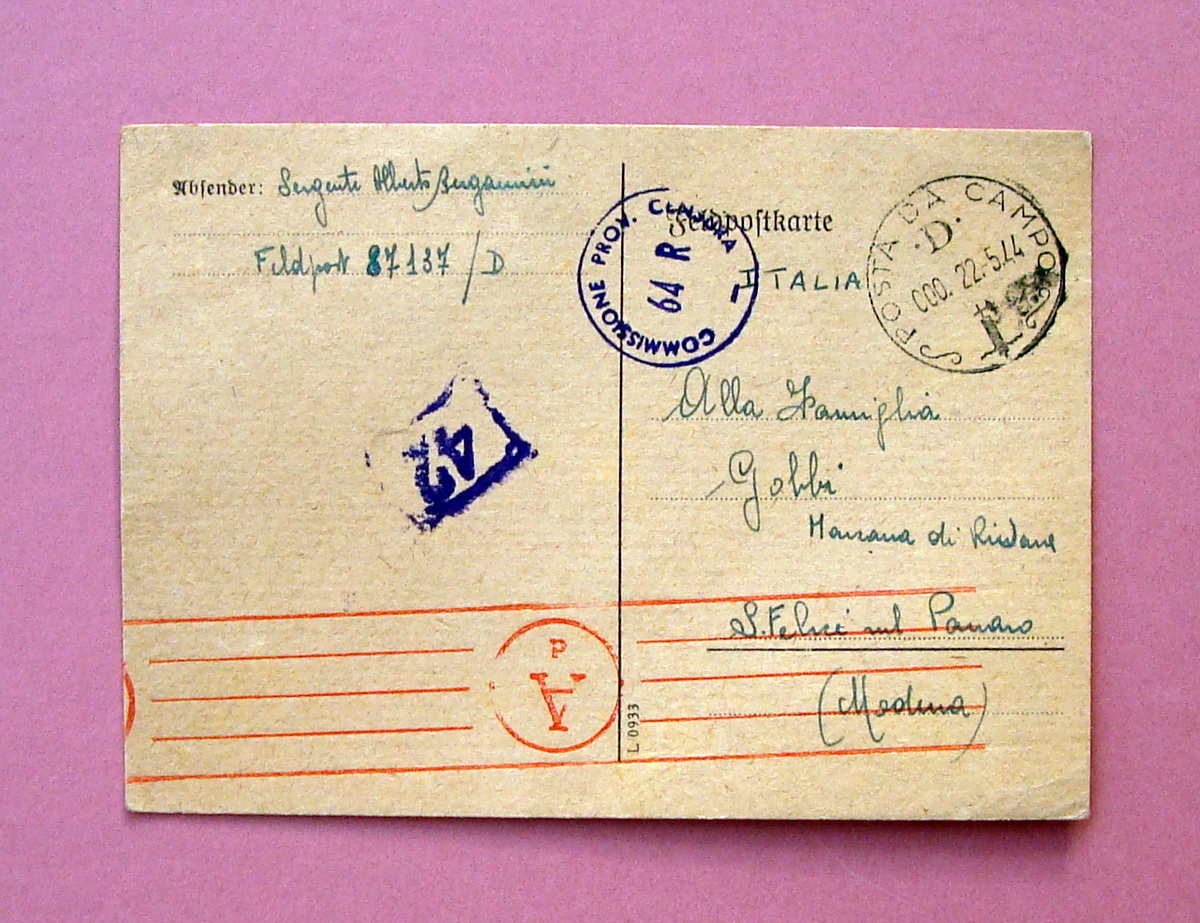 Absender: Sergente Alberto Bergamini
Feldpost 87137/D
Feldpostkarte
ITALIA
COMMISSIONE PROV. CENSURA
64 R
POSTA DA CAMPO
D.
000. 22.5.44
42
Alla Famiglia
Gobbi
di
S.Felice sul Panaro
(Modena)
P
A
L 0933